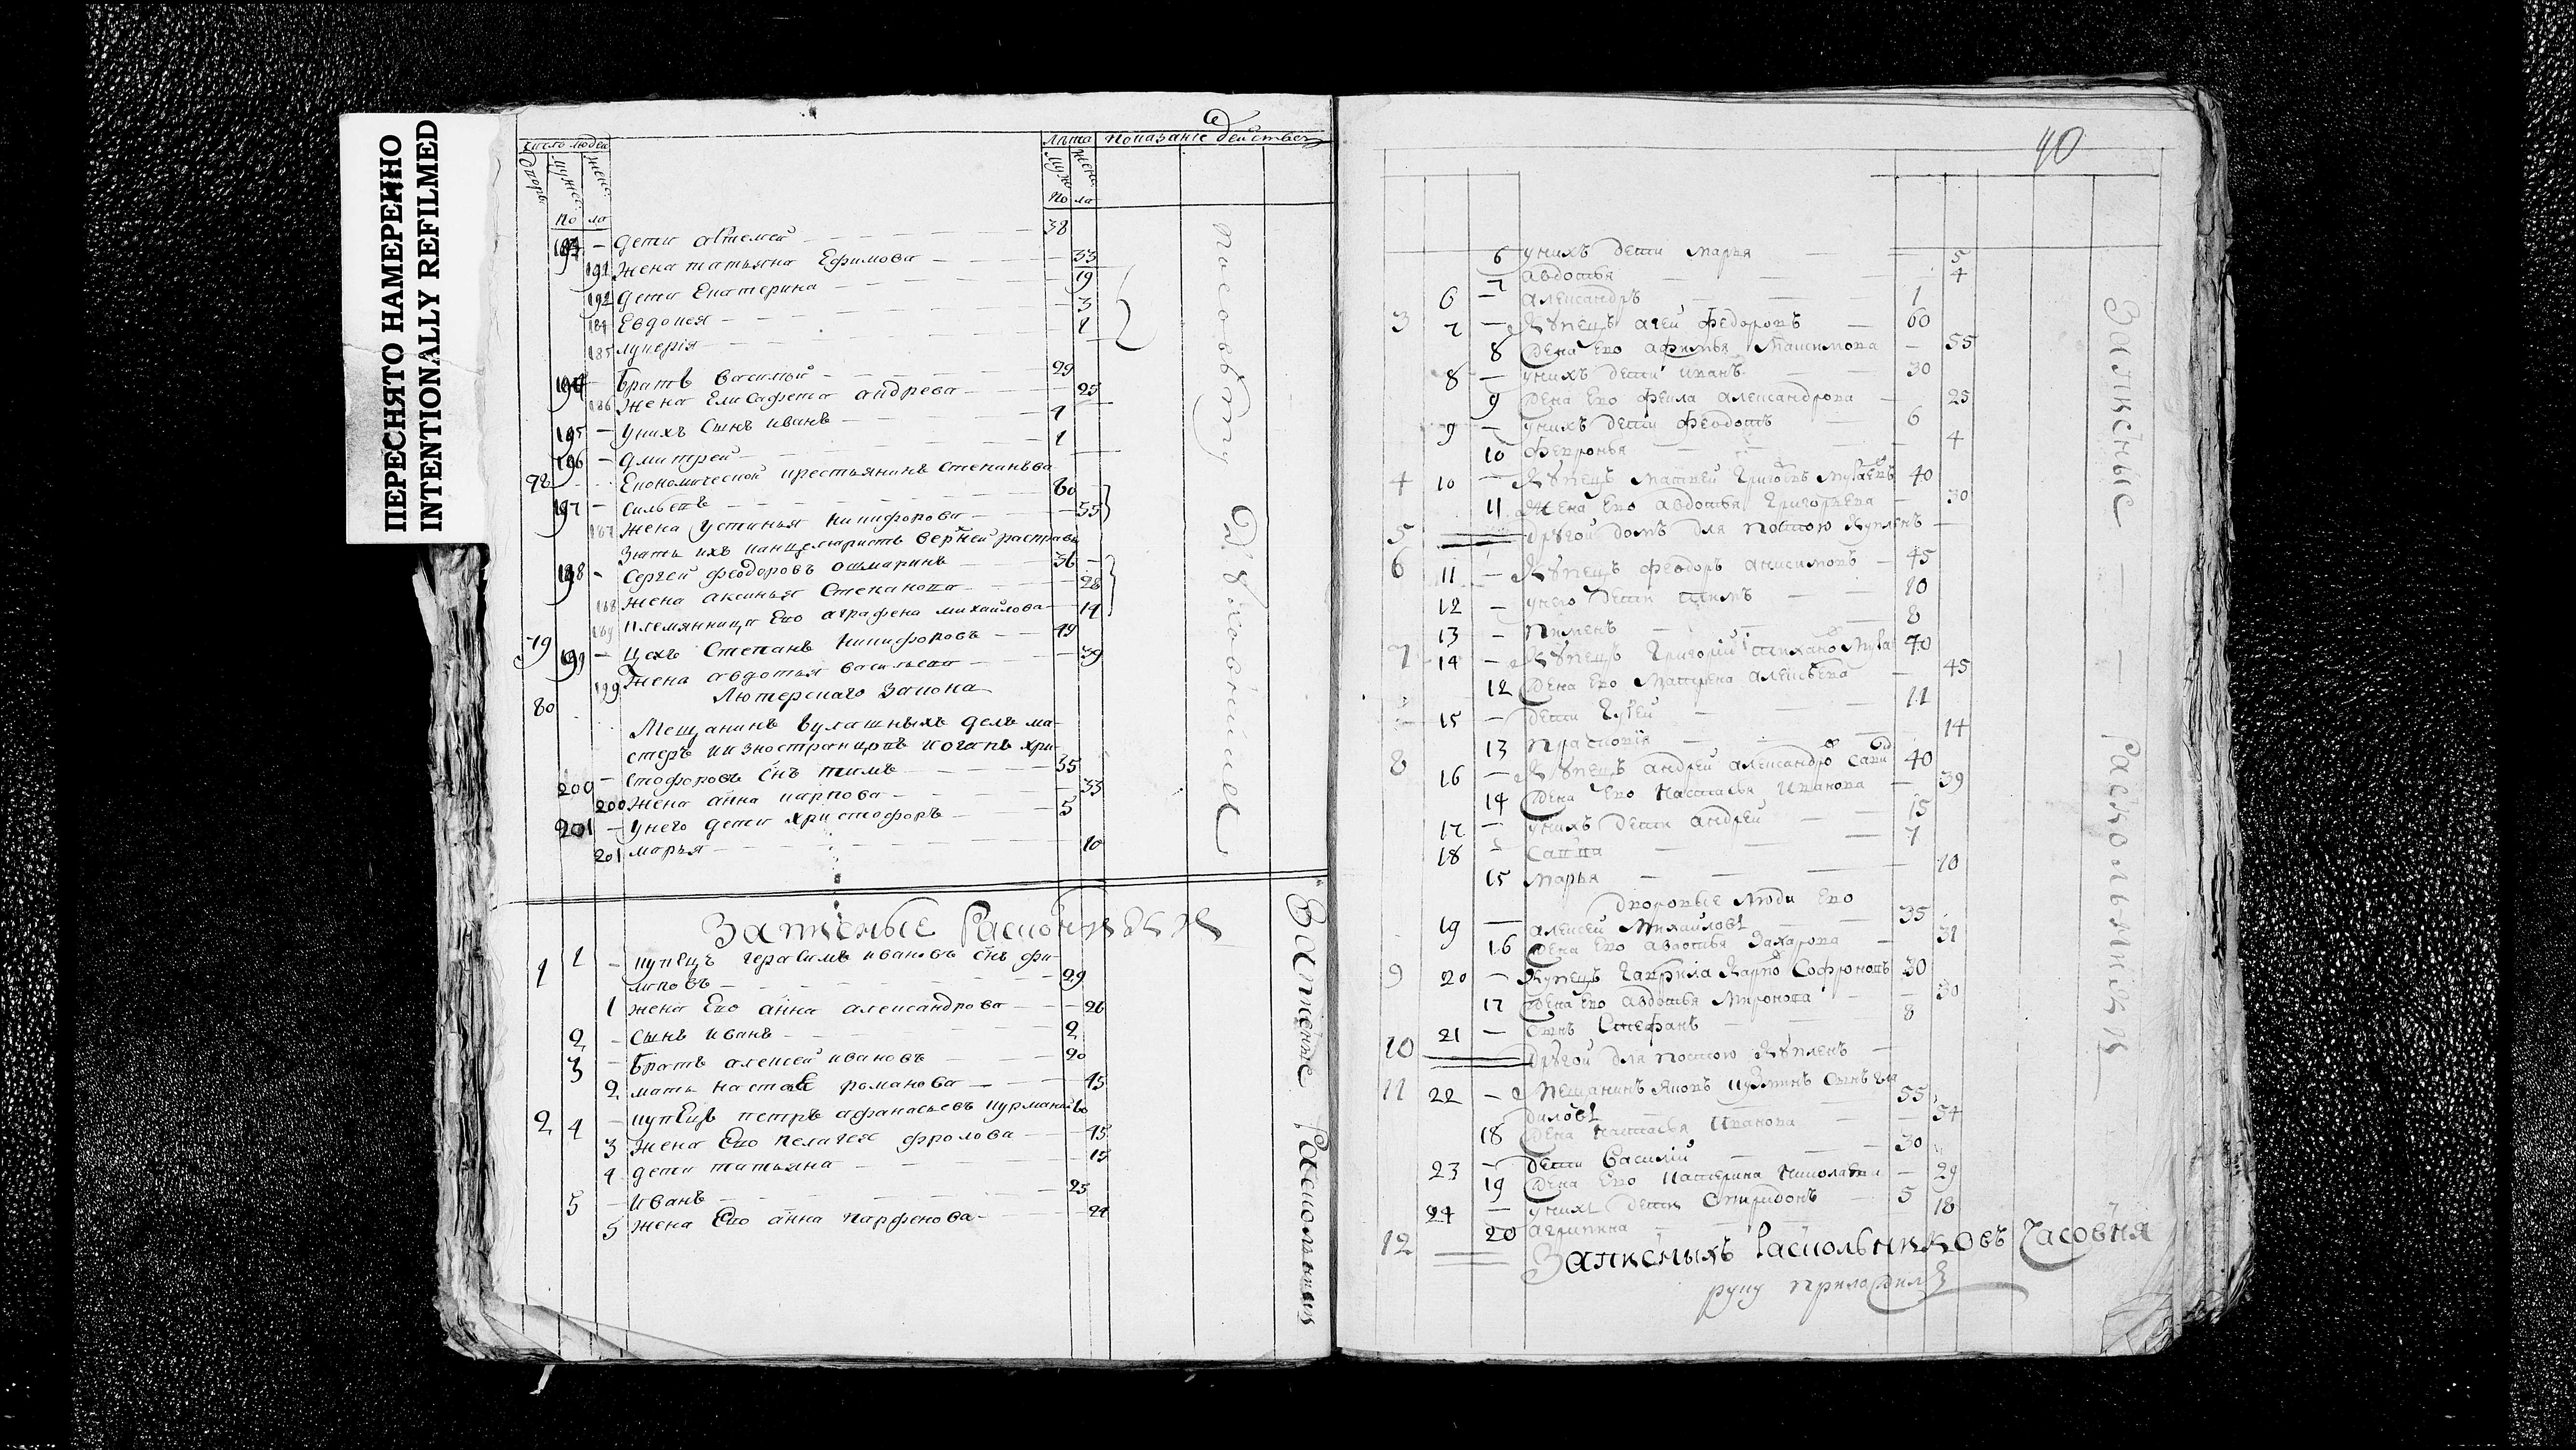 ПЕРЕСНЯТО НАМЕРЕННО
INTENTIONALLY REFILMED
число людей
Лѣта
показание действ
мужеск
женс
по ла
по ла
дети 38
191 жена татьяна Ефимова 33
192 дети Екатерина 19
184 Евдокея 3
185 лукерія 1
194 братъ василий 29
186 жена Елисафета андрева 25
195 у нихъ сынъ иванъ 4
196 дмитрей 1
78 Економической крестьянинъ Степанъ
197 60
187 жена устинья никифорова 55
зять ихъ канцеляристъ верхней расправы
198 Сергей феодоровъ ошмаринъ 36
188 жена аксинья Степанова 28
189 племянница Ево аграфена михайлова 14
79 199 цехъ Степанъ никифоровъ 49
199 жена авдотья васильева 39
Лютерскаго закона
80
Мещанинъ булашныхъ делъ ма-
стеръ из иностранцовъ иоганъ хри-
200 стофоровъ снъ тимъ 35
200 жена анна карпова 33
201 у него дети христофоръ 5
201 марья 10
Записные Раскольники
1 1 купецъ герасимъ ивановъ снъ фи-
липовъ 29
1 жена Ево анна александрова 26
2 сынъ иванъ 2
3 братъ алексей ивановъ 20
2 мать романова 45
2 4 купецъ петръ афанасьевъ 60
3 жена Ево пелагея фролова 45
4 дети татьяна 15
5 иванъ 25
5 жена Ево анна парфенова 24
Записные Раскольники
40
6 у нихъ дети марья 5
7 авдотья 4
6 александръ 1
3 7 Купецъ агей федоровъ 60
8 жена Ево афимья Максимова 55
8 у нихъ дети иванъ 30
9 жена Ево фекла александрова 25
9 у нихъ дети феодотъ 6
10 февронья 4
4 10 Купецъ матвей 40
11 жена Ево авдотья Григорьева 30
5 другой домъ для постою купленъ
6 11 Купецъ феодоръ анисимовъ 45
12 у него дети 10
13 пименъ 8
7 14 Купецъ Григорий 70
12 жена Ево матрена алексѣева 45
15 дети гурей 11
13 прасковія 14
8 16 Купецъ андрей александро 40
14 жена Ево настасья иванова 39
17 у нихъ дети андрей 15
18 савва 7
15 марья 10
дворовые люди Ево
19 алексей михайловъ 35
16 жена Ево авдотья Захарова 31
9 20 Купецъ гаврила карпо Софроновъ 30
17 жена Ево авдотья миронова 30
21 сынъ Стефанъ 8
10 другой для постою купленъ
11 22 Мещанинъ яковъ сынъ га
55
18 жена настасья иванова 54
23 дети василий 30
19 жена Ево катерина николаева 29
24 у нихъ дети Спиридонъ 5
20 агрипина 18
12 Записныхъ Раскольниковъ часовня
руку приложилъ
Записные Раскольники